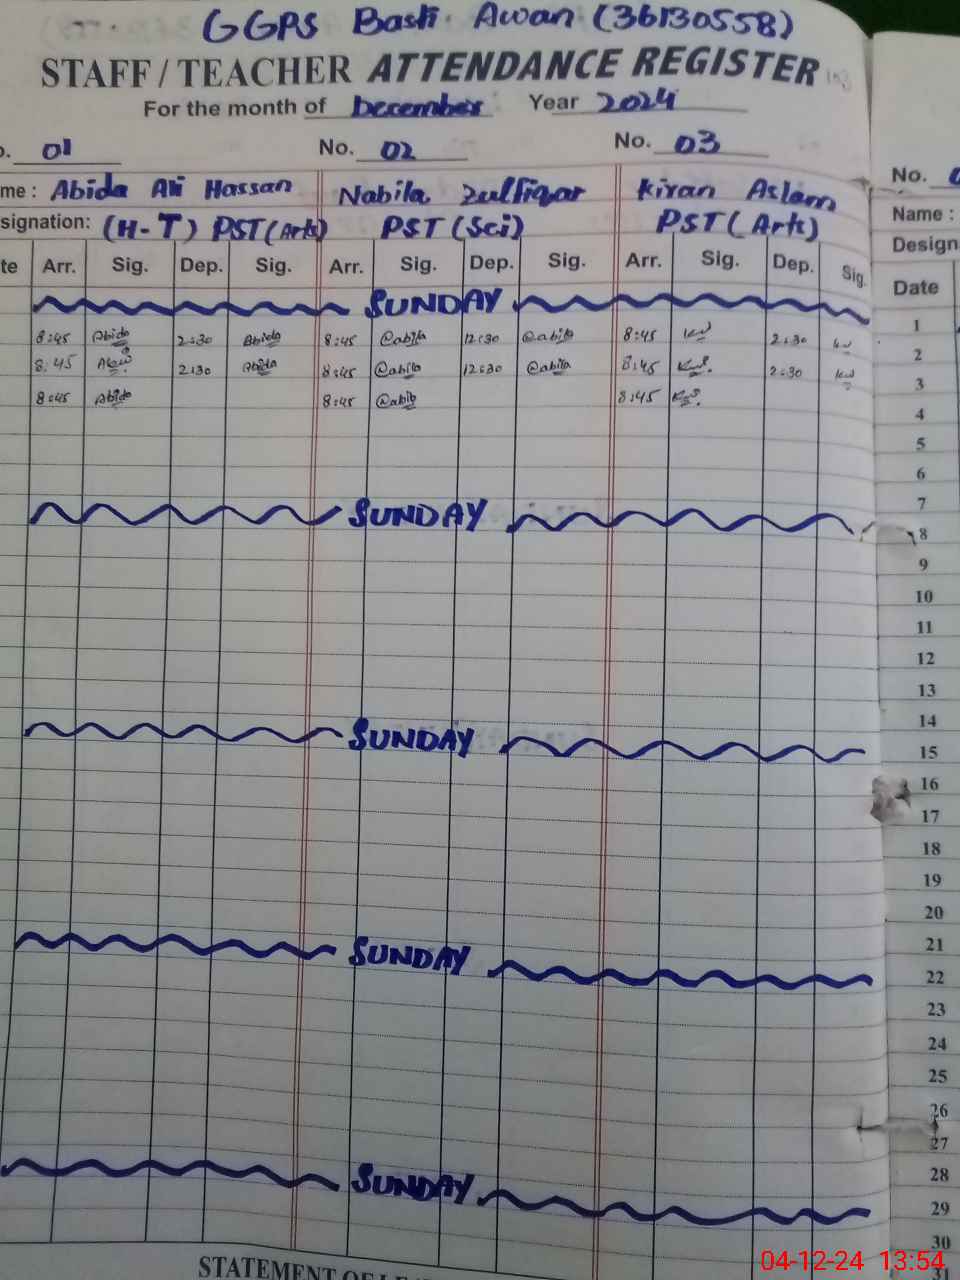 GGPS Basti Awan (36130558)
STAFF / TEACHER ATTENDANCE REGISTER
For the month of December Year 2024
o. 01 No. 02 No. 03
me : Abida Ali Hassan Nabila Zulfiqar Kiran Aslam
signation: (H-T) PST (Arts) PST (Sci) PST (Arts)
te Arr. Sig. Dep. Sig. Arr. Sig. Dep. Sig. Arr. Sig. Dep. Sig.
SUNDAY
8:45 Abida 2:30 Abida 8:45 @abila 12:30 @abila 8:45 2:30
8:45 2:30 Abida 8:45 @abila 12:30 @abila 8:45 2:30
8:45 Abida 8:45 @abila 8:45
SUNDAY
SUNDAY
SUNDAY
SUNDAY
STATEMENT OF
No.
Name :
Design
Date
1
2
3
4
5
6
7
8
9
10
11
12
13
14
15
16
17
18
19
20
21
22
23
24
25
26
27
28
29
30
31
04-12-24 13:54